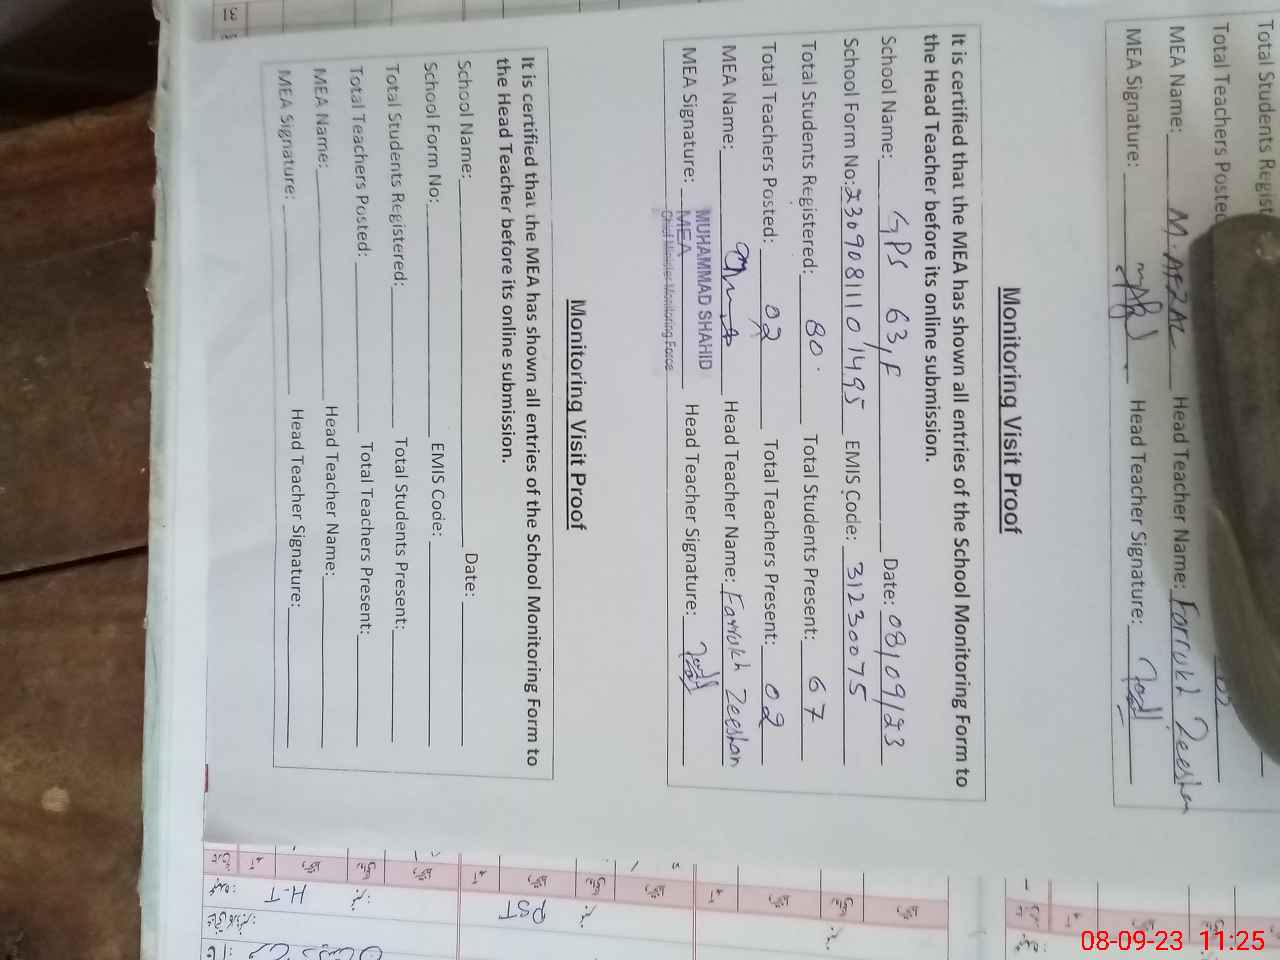 Total Students Regist
Total Teachers Posted
MEA Name: M. AFZAL Head Teacher Name: Farrukh Zeeshan
MEA Signature: Head Teacher Signature:
Monitoring Visit Proof
It is certified that the MEA has shown all entries of the School Monitoring Form to
the Head Teacher before its online submission.
School Name: GPS 63,F Date: 08/09/23
School Form No: 23090811101495 EMIS Code: 31230075
Total Students Registered: 80. Total Students Present: 67
Total Teachers Posted: 02 Total Teachers Present: 02
MEA Name: Head Teacher Name: Farrukh Zeeshan
MEA Signature: Head Teacher Signature:
MUHAMMAD SHAHID
MEA
Chief Minister Monitoring Force
Monitoring Visit Proof
It is certified that the MEA has shown all entries of the School Monitoring Form to
the Head Teacher before its online submission.
School Name: Date:
School Form No: EMIS Code:
Total Students Registered: Total Students Present:
Total Teachers Posted: Total Teachers Present:
MEA Name: Head Teacher Name:
MEA Signature: Head Teacher Signature:
H-T
PST
08-09-23 11:25